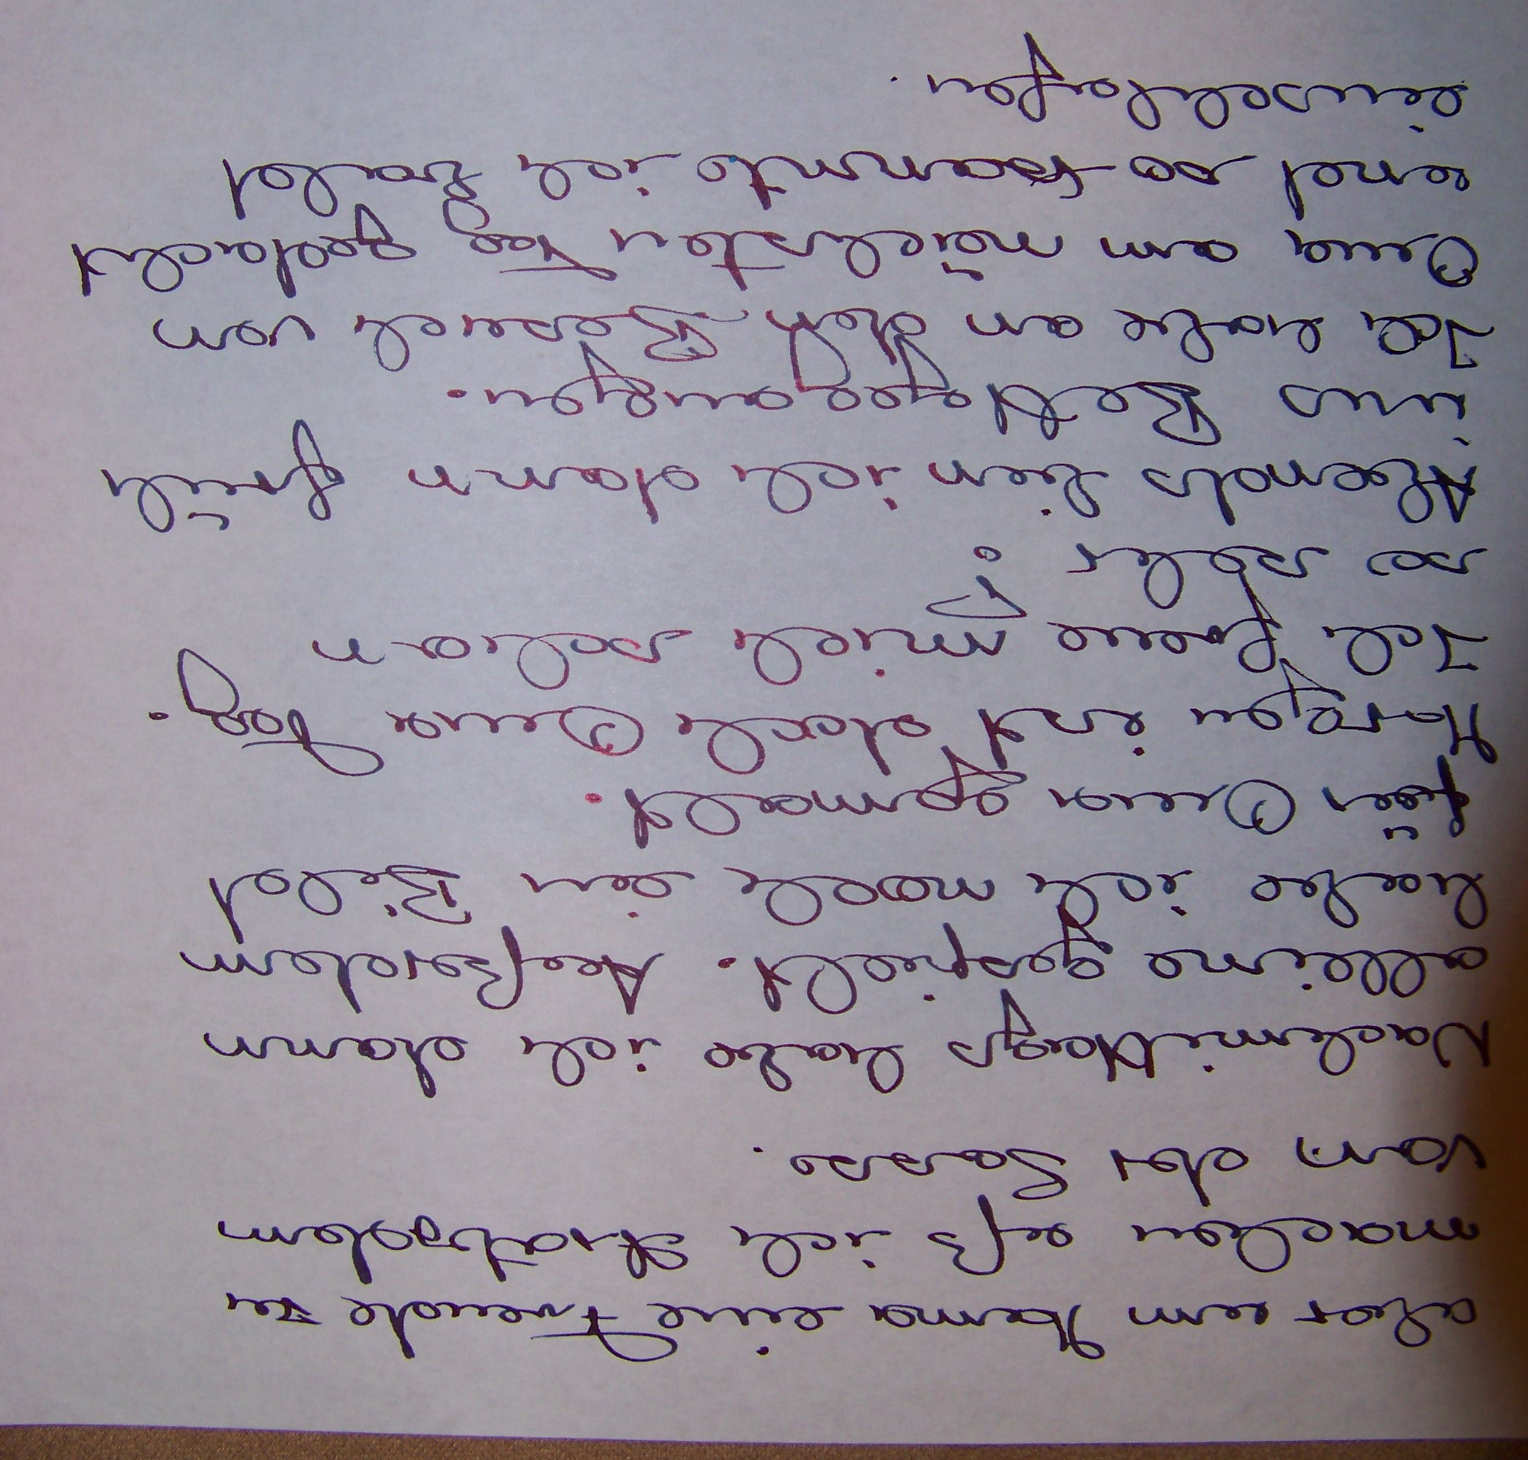 aber um Mama eine Freude zu
machen eß ich trotzdem
von der Sosse.
Nachmittags habe ich dann
alleine gespielt. Außerdem
habe ich noch ein Bild
für Oma gemalt.
Morgen ist doch Oma Tag.
Ich freue mich schon
so sehr!
Abends bin ich dann früh
ins Bett gegangen.
Ich habe an den Besuch von
Oma am nächsten Tag gedacht
und so konnte ich bald
einschlafen.